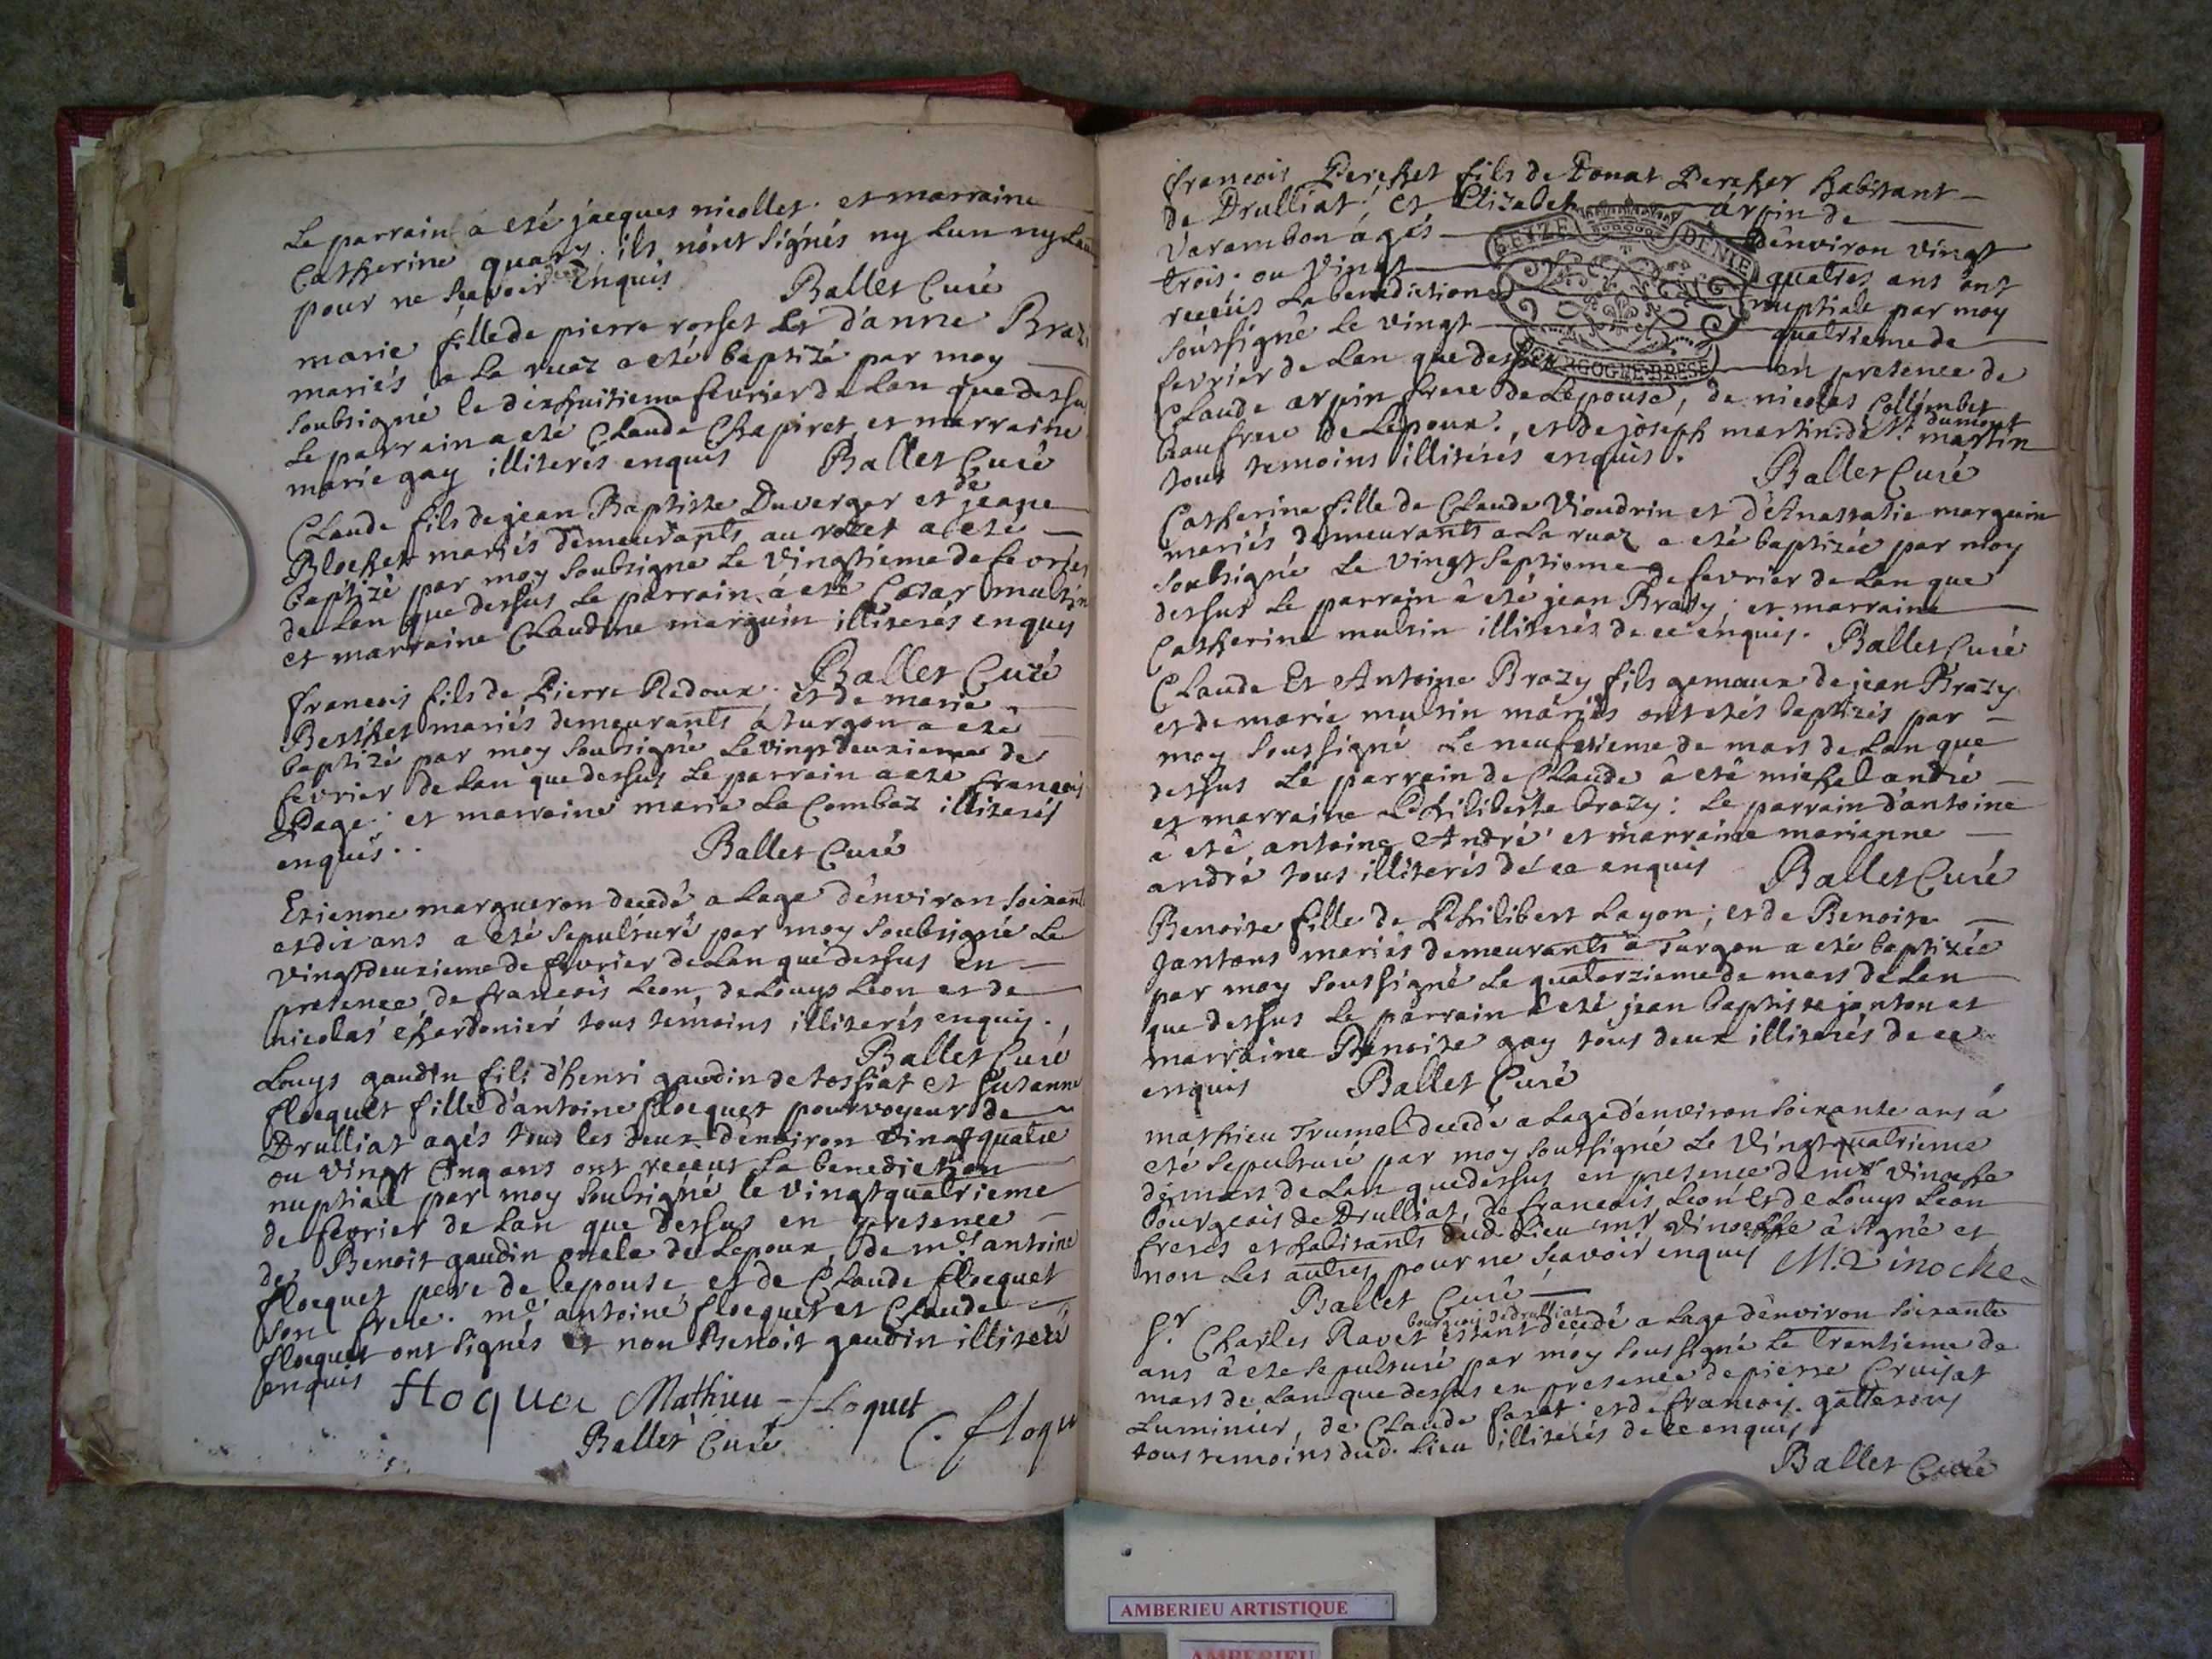 Le parrain a eté jacques nicollet et marraine
Catherine quary ils n'ont signés ny lun ny
pour ne sçavoir enquis Ballet Curé
marie fille de pierre rosset et d'anne Braz
mariés a La ruaz a eté baptizé par moy
soubsigné le dixhuitieme fevrier de Lan que dessu
Le parrain a eté Claude Chapiret et marraine
marie gay illiterés enquis Ballet Curé
Claude fils de jean Baptiste Duverger et de jeane
Blochet mariés demeurants au rotet a eté
baptizé par moy soubsigné Le vingtieme de fevrier
de Lan que dessus Le parrain a eté Cezar mutin
et marraine Claudine marguin illiterés enquis
Ballet Curé
francois fils de Pierre Redoux et de marie
Berthet mariés demeurants a turgon a eté
baptizé par moy soubsigné Le vingt deuxieme de
fevrier de Lan que dessus Le parrain a eté francois
Page et marraine marie La Combaz illiterés
enquis Ballet Curé
Etienne margueron decedé a Lage d'environ soixant
et dix ans a eté sepulturé par moy soubsigné Le
vingt deuxieme de fevrier de Lan que dessus en
presence de francois Leon, de Louys Leon et de
nicolas chardonier tous temoins illiterés enquis.
Ballet Curé
Louys gaudin fils d'henri gaudin de tossiat et susanne
flocquet fille d'antoine flocquet pourvoyeur de
Drulliat agés tous les deux d'environ vingt quatre
ou vingt Cinq ans ont reçeus La benediction
nuptiale par moy soubsigné le vingtquatrieme
de fevrier de Lan que dessus en presence
de Benoit gaudin oncle de Lepoux, de me antoine
flocquet pere de lepouse et de Claude flocquet
son frere. me antoine flocquet et Claude
flocquet ont signés et non Benoit gaudin illiteré
enquis floquet Mathieu floquet
Ballet Curé C. floqu
francois Perchet fils de Donat Percher habitant
de Drulliat et Elizabet arpin de
Varambon agés d'environ vingt
trois ou vingt quatres ans ont
reçeus La benediction nuptiale par moy
soussigné Le vingt quatrieme de
fevrier de Lan que dessus en presence de
Claude arpin frere de Lepouse, de nicolas Collombet
beaufrere de Lepoux, et de joseph martin de St martin dumont
tous temoins illiterés enquis. Ballet Curé
Catherine fille de Claude Vioudrin et d'Anastasie marguin
mariés demeurants a La ruaz a eté baptizée par moy
soubsigné Le vingt septieme de fevrier de Lan que
dessus Le parrain a eté jean Brazy et marraine
Catherine mutin illiterés de ce enquis. Ballet Curé
Claude Et Antoine Brazy fils gemeaux de jean Brazy
et de marie mutin mariés ont etés baptizés par
moy soussigné Le neufvieme de mars de Lan que
dessus Le parrain de Claude a eté michel andré
et marraine Philiberte brazy: Le parrain d'antoine
a eté antoine André et marraine marianne
andré tous illiterés de ce enquis Ballet Curé
Benoite fille de Philibert Layon; et de Benoite
Jantons mariés demeurants a Turgon a eté baptizée
par moy soussigné Le quatorzieme de mars de Lan
que dessus Le parrain a eté jean baptiste janton et
marraine Benoite gay tous deux illiterés de ce
enquis Ballet Curé
mathieu Trumel decedé a Lage d'environ soixante ans a
eté sepulturé par moy soussigné Le Vingtquatrieme
de mars de Lan que dessus en presence de mr Vinoche
bourgeois de Drulliat, de francois Leon et de Louys Leon
freres et habitants dud. Lieu mr Vinoche a signé et
non Les autres pour ne sçavoir enquis M. Vinoche
Ballet Curé
Sr. Charles Ravet bourgeois de drulliat estant decedé a Lage d'environ soixante
ans a eté sepulturé par moy soussigné Le trentieme de
mars de Lan que dessus en presence de pierre Cruisat
Luminier, de Claude foret et de francois gatteroux
tous temoins dud. Lieu illiterés de ce enquis
Ballet Curé
AMBERIEU ARTISTIQUE
AMBERIEU